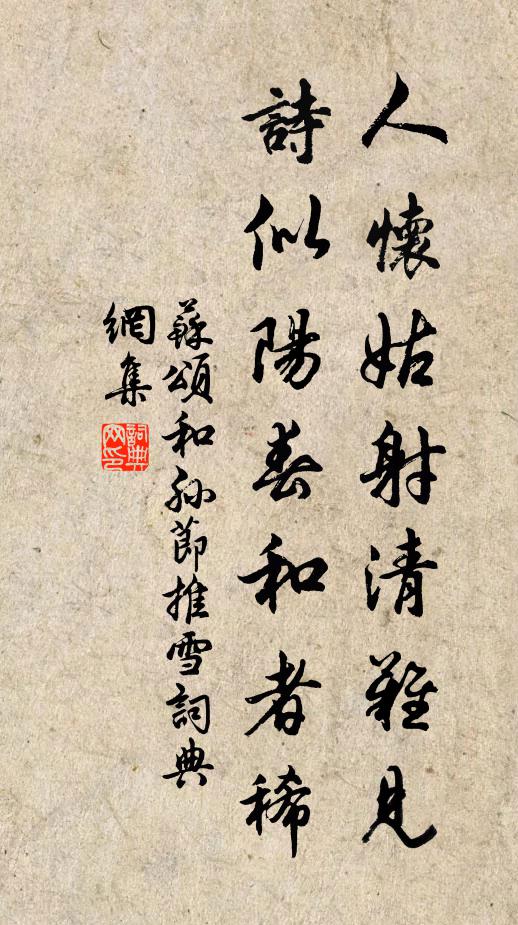 人懷姑射清難見
詩似陽春和者稀
蘇頌和孙節推雪詞典
網集
詞典
网印